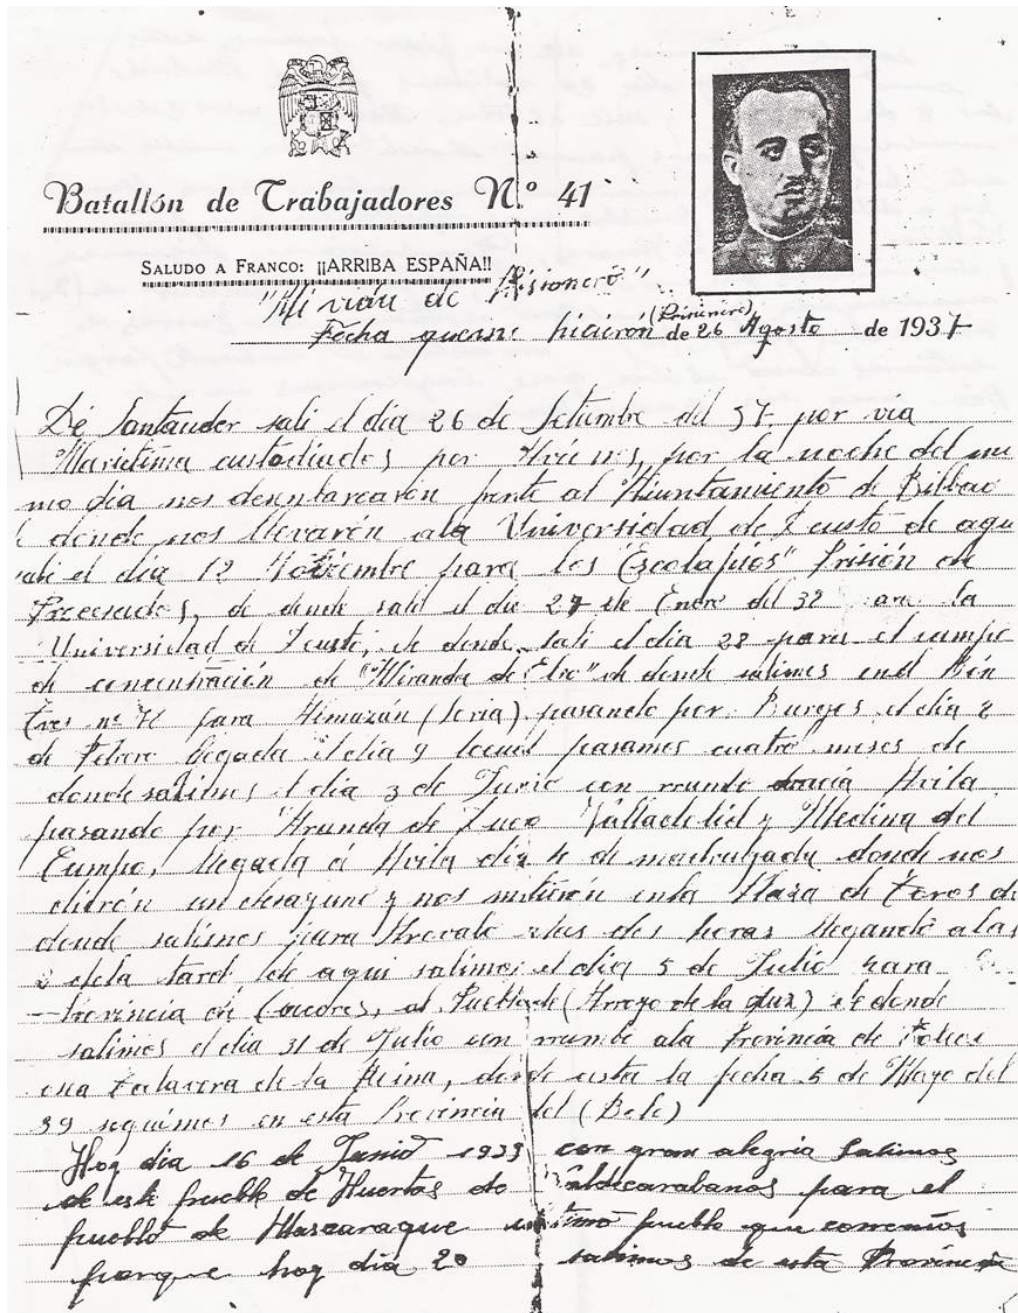 Batallón de Trabajadores N.º 41
SALUDO A FRANCO: ¡¡ARRIBA ESPAÑA!!
"Mi viáu de Prisionero"
(Prisionero)
Fecha que me hicierón de 26 Agosto de 1937
Dé Santander sali el dia 26 de Setiembre del 37 por via
Maritima custodiados por, por la noche del mis
mo dia nos desenbarcarón frente al Aiuntamiento de Bilbao
de donde nos llevarón ala Universidad de Deusto de aqui
sali el dia 12 Noviembre para los "Escolapios" Prisión de
Procesados, de donde sali el dia 27 de Enero del 38 la
Universidad de Deusto, de donde sali el dia 28 para el campo
de concentración de "Miranda de Ebro" de donde salimos en el Bón
nº para Almazán (Soria) pasando por Burgos el dia 8
de Febrero llegada el dia 9 locual pasamos cuatro meses de
donde salimos el dia 3 de Junio con rumbo hacia Avila
pasando por Aranda de Duero Valladolid y Medina del
Campo, llegada á Avila dia 4 de madrugada donde nos
dierón un desayuno y nos metierón enla Plaza de Toros de
donde salimos para Arevalo alas dos horas llegando alas
2 dela tarde de aqui salimos el dia 5 de Julio para la
Provincia de Caceres, al Pueblo de (Arroyo de la Luz) de donde
salimos el dia 31 de Julio con rrumbo ala Provincia de Toledo
Talavera de la Reina, desde esta la fecha 5 de Mayo del
39 seguimos en esta Provincia del (Bole)
Hoy dia 16 de Junio 1939 con gran alegria Salimos
de este pueblo de Huertas de Valdecarabanos para el
pueblo de Mascaraque ultimo pueblo que corremos
porque hoy dia 20 salimos de esta Provincia